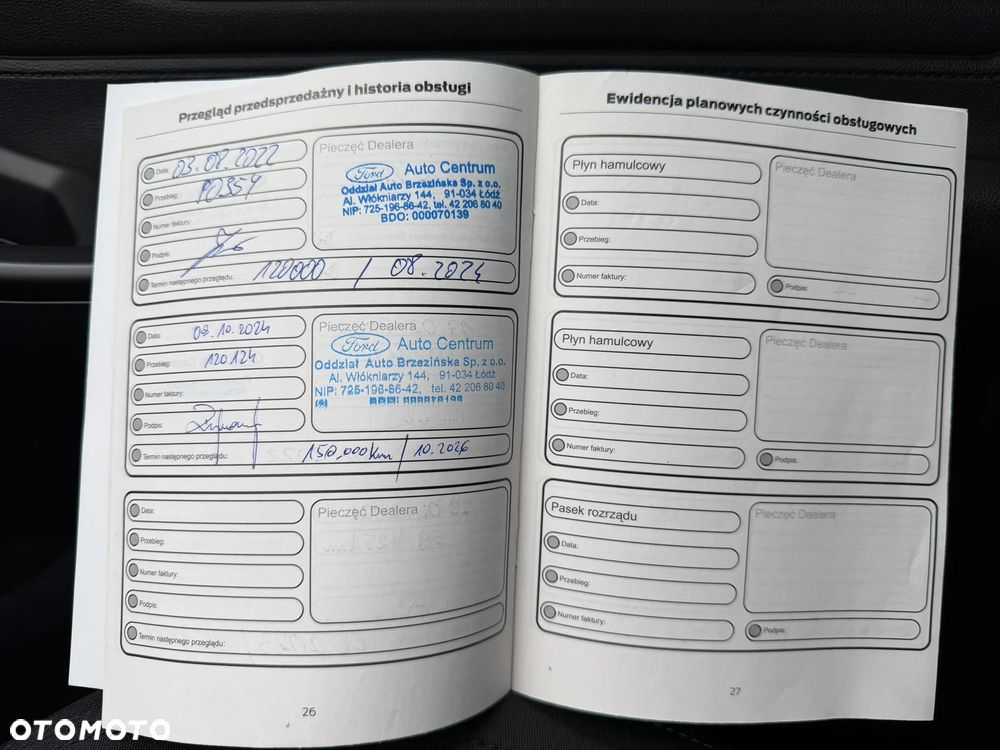 Przegląd przedsprzedażny i historia obsługi
Data: 03.08.2022
Przebieg:
Numer faktury:
Podpis:
Termin następnego przeglądu: 120000 / 08.2024
Pieczęć Dealera
Ford Auto Centrum
Oddział Auto Brzezińska Sp. z o.o.
Al. Włókniarzy 144, 91-034 Łódź
NIP: 725-196-86-42, tel. 42 206 80 40
BDO: 000070139
Data: 09.10.2024
Przebieg: 120124
Numer faktury:
Podpis:
Termin następnego przeglądu: 150,000km / 10.2026
Pieczęć Dealera
Ford Auto Centrum
Oddział Auto Brzezińska Sp. z o.o.
Al. Włókniarzy 144, 91-034 Łódź
NIP: 725-196-86-42, tel. 42 206 80 40
Data:
Przebieg:
Numer faktury:
Podpis:
Termin następnego przeglądu:
Pieczęć Dealera
26
Ewidencja planowych czynności obsługowych
Płyn hamulcowy
Data:
Przebieg:
Numer faktury:
Pieczęć Dealera
Podpis:
Płyn hamulcowy
Data:
Przebieg:
Numer faktury:
Pieczęć Dealera
Podpis:
Pasek rozrządu
Data:
Przebieg:
Numer faktury:
Pieczęć Dealera
Podpis:
27
OTOMOTO